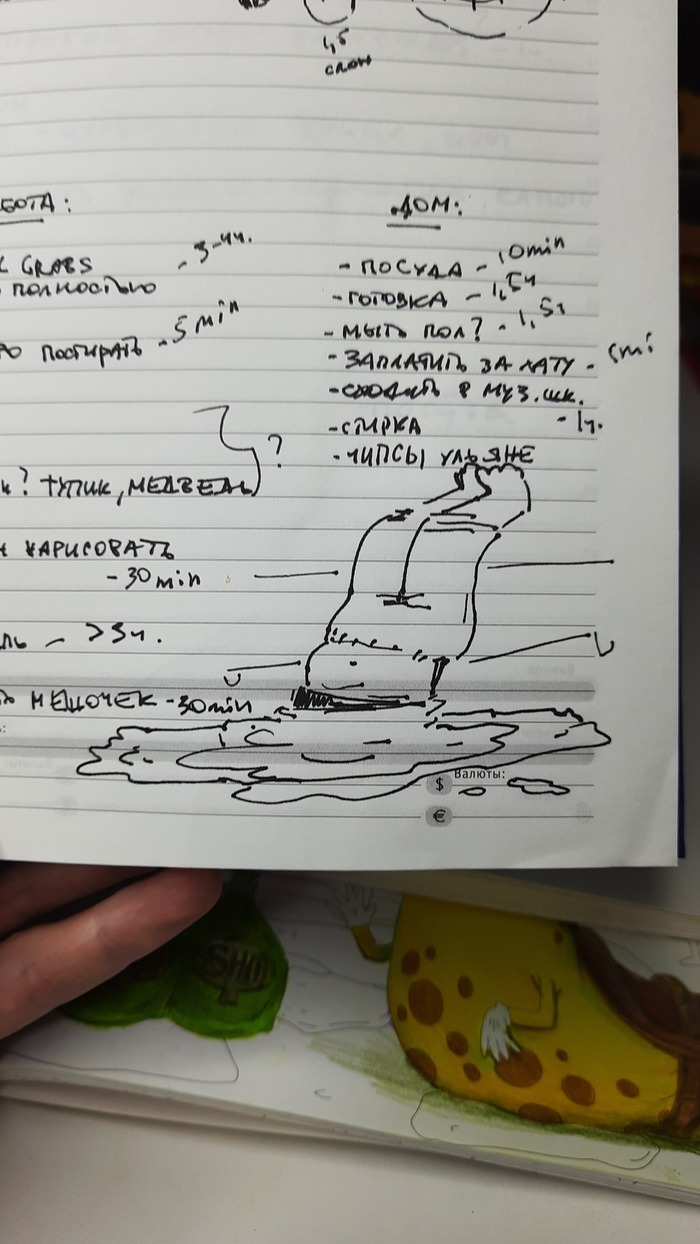 1,5
слон
БОТА:
- 3-4ч.
GRASS
полностью
постирать - 5 min
?
? тупик, медведь
нарисовать
- 30 min
ль - >3ч.
мешочек - 30 min
ДОМ:
- посуда - 10 min
- готовка - 1,5ч
- мыть пол? - 1,5ч
- заплатить за хату - 5mi
- сходить в муз. шк.
- 1ч.
- стирка
- чипсы Ульяне
Валюты:
$
€
SHO